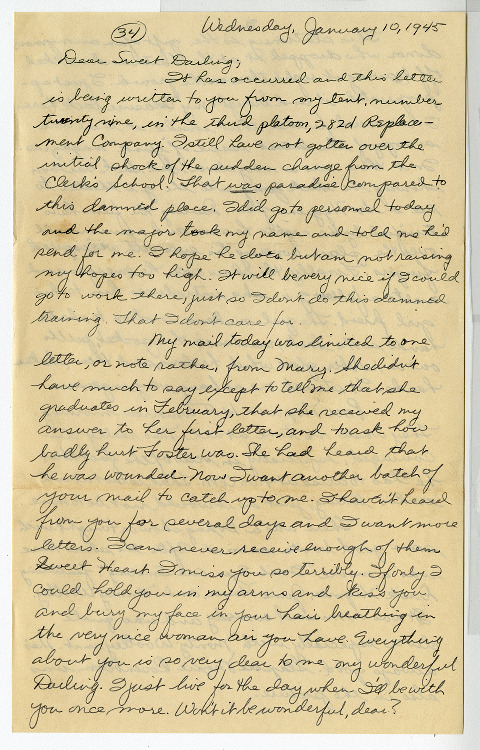 34
Wednesday, January 10, 1945
Dear Sweet Darling;
It has occurred and this letter
is being written to you from my tent, number
twenty nine, in the third platoon, 282d Replace-
ment Company. I still have not gotten over the
initial shock of the sudden change from the
Clerk's School. That was paradise compared to
this damned place. I did go to personnel today
and the major took my name and told me he'd
send for me. I hope he does but am not raising
my hopes too high. It will be very nice if I could
go to work there, just so I don't do this damned
training. That I don't care for.
My mail today was limited to one
letter, or note rather, from Mary. She didn't
have much to say except to tell me that she
graduates in February, that she received my
answer to her first letter, and to ask how
badly hurt Foster was. She had heard that
he was wounded. Now I want another batch of
your mail to catch up to me. I haven't heard
from you for several days and I want more
letters. I can never receive enough of them
Sweet Heart I miss you so terribly. If only I
could hold you in my arms and kiss you
and bury my face in your hair breathing in
the very nice woman air you have. Everything
about you is so very dear to me my wonderful
Darling. I just live for the day when I'll be with
you once more. Won't it be wonderful, dear?